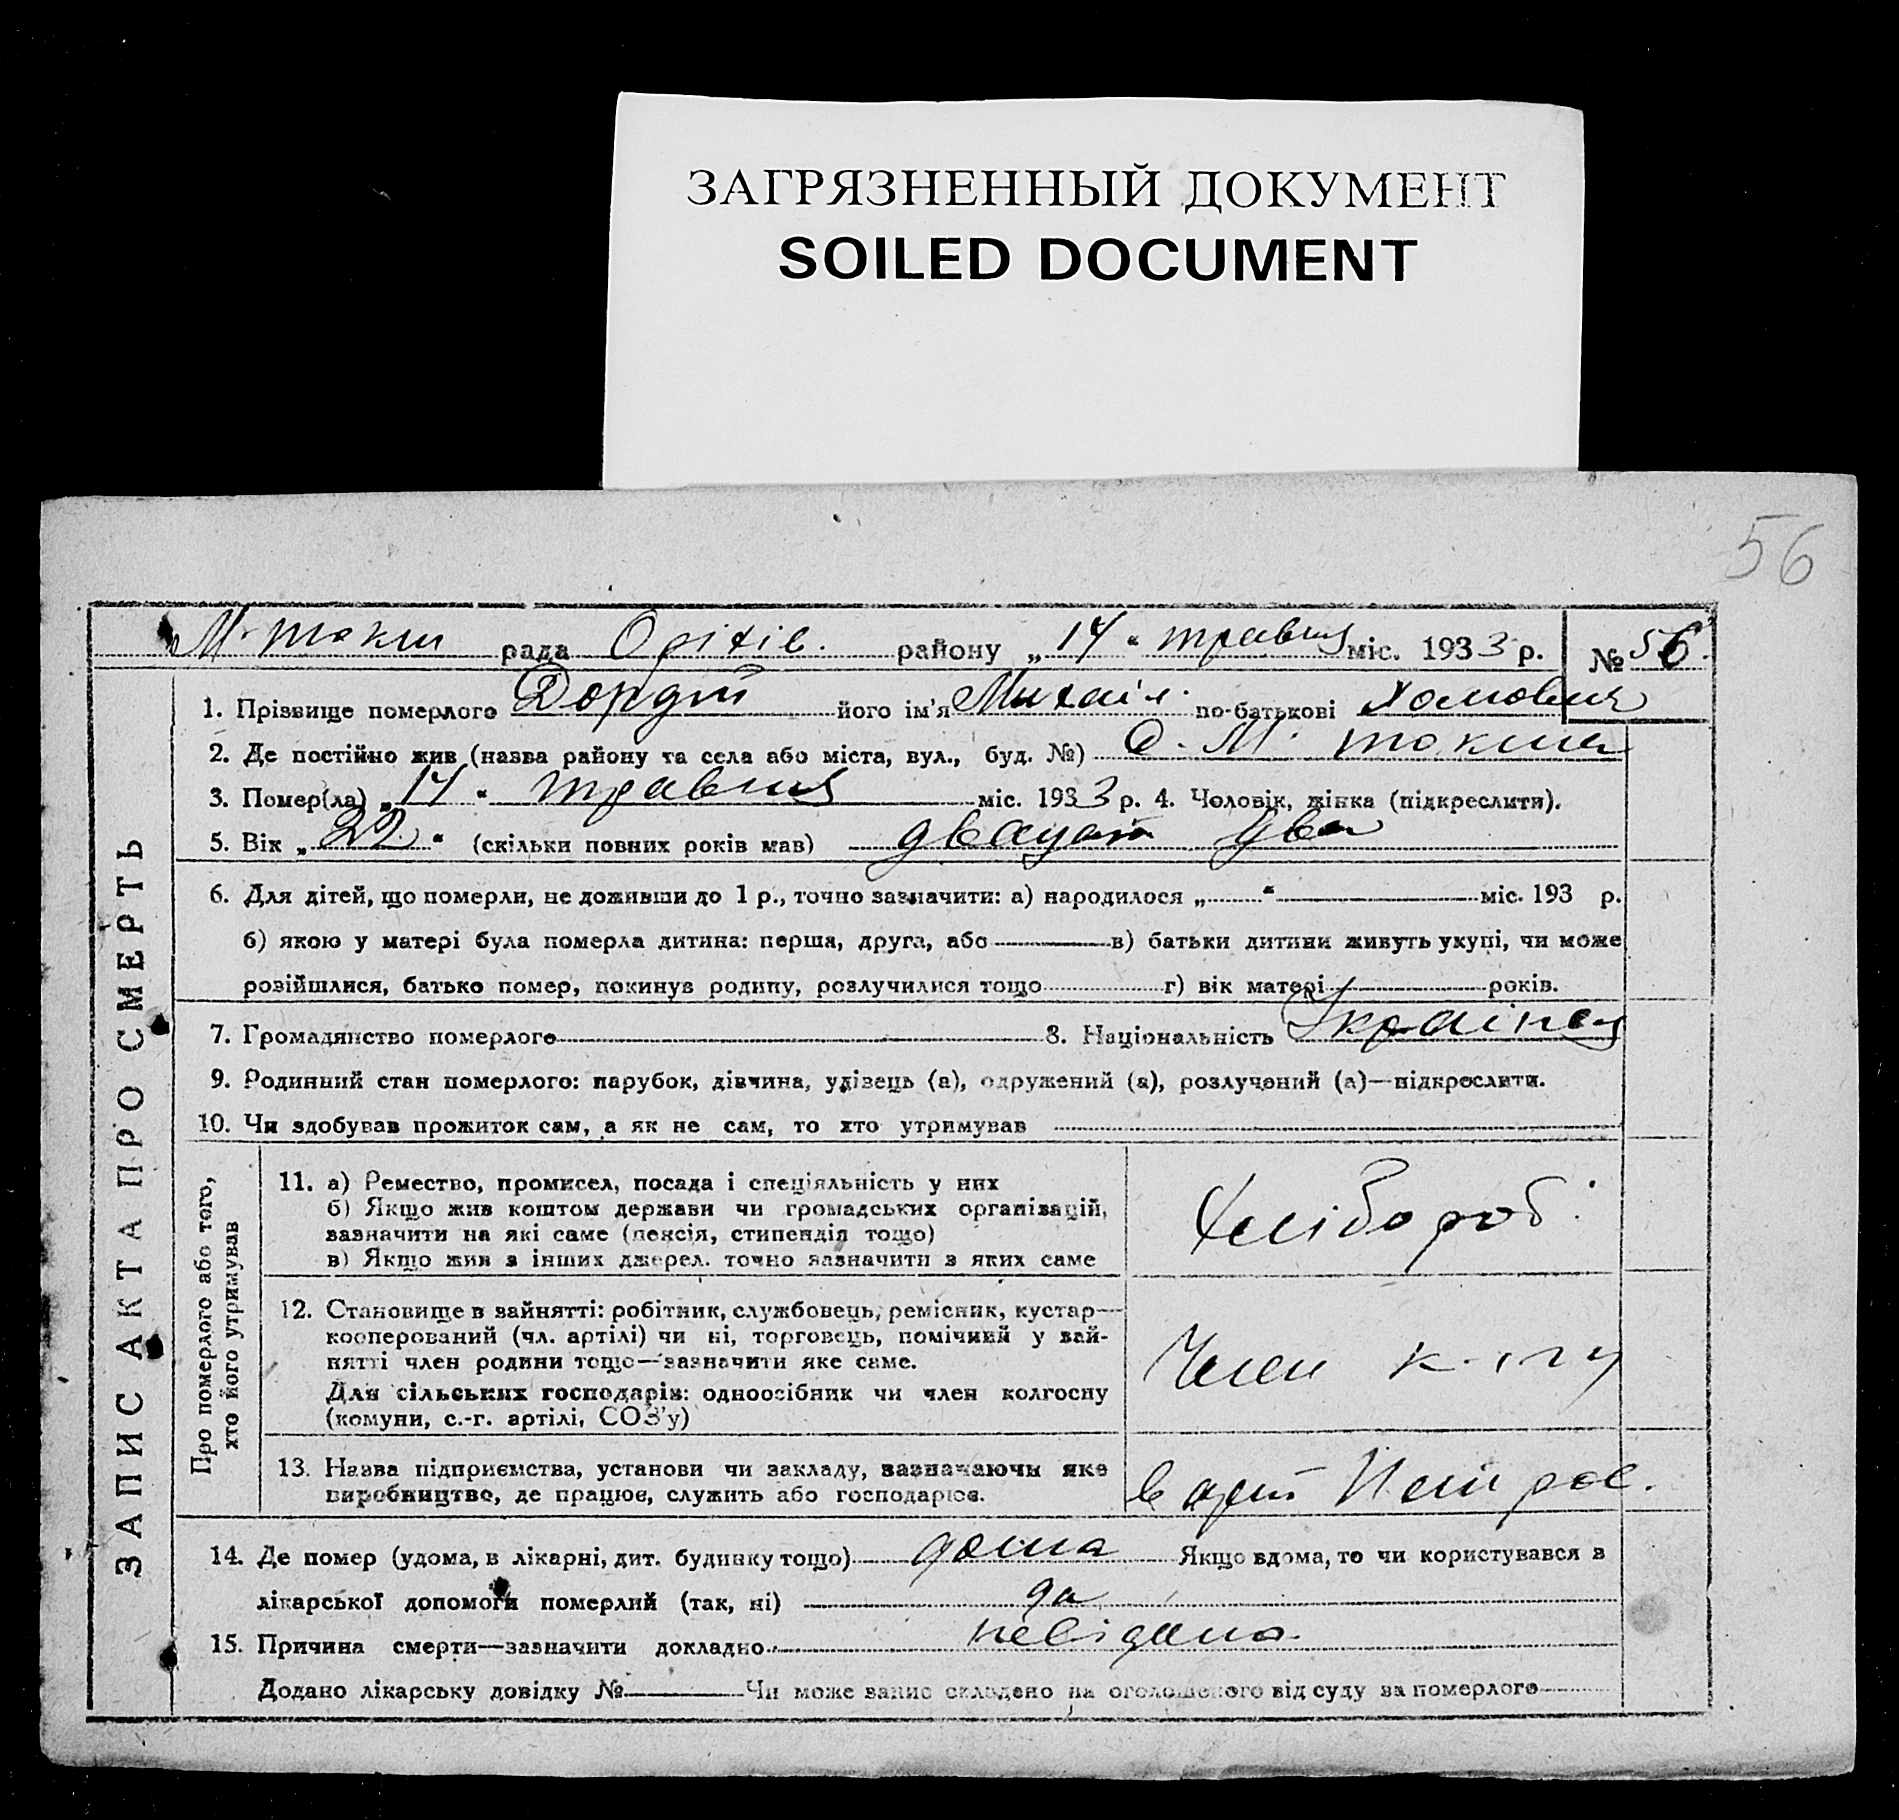 ЗАГРЯЗНЕННЫЙ ДОКУМЕНТ
SOILED DOCUMENT
56
М. токм рада Оріхів. району „14“ травня міс. 1933 р. № 56.
1. Прізвище померлого його ім'я Михаіл. по-батькові Хомовия
2. Де постійно жив (назва району та села або міста, вул., буд. №) С. М. токмач
3. Помер(ла) „14“ травня міс. 1933 р. 4. Чоловік, жінка (підкреслити).
5. Вік „22.“ (скільки повних років мав) двацать два
6. Для дітей, що померли, не доживши до 1 р., точно зазначити: а) народилося „ “ міс. 193 р.
б) якою у матері була померла дитина: перша, друга, або в) батьки дитини живуть укупі, чи може
розійшлися, батько помер, покинув родину, розлучилися тощо г) вік матері років.
7. Громадянство померлого 8. Національність Українец
9. Родинний стан померлого: парубок, дівчина, удівець (а), одружений (а), розлучений (а)—підкреслити.
10. Чи здобував прожиток сам, а як не сам, то хто утримував
ЗАПИС АКТА ПРО СМЕРТЬ
Про померлого або того,
хто його утримував
11. а) Ремество, промисел, посада і спеціяльність у них
б) Якщо жив коштом держави чи громадських організацій,
зазначити на які саме (пенсія, стипендія тощо)
в) Якщо жив з інших джерел. точно зазначити з яких саме
Хлібороб.
12. Становище в зайнятті: робітник, службовець, ремісник, кустар—
кооперований (чл. артілі) чи ні, торговець, помічний у зай-
нятті член родини тощо—зазначити яке саме.
Для сільських господарів: одноосібник чи член колгоспу
(комуни, с.-г. артілі, СОЗ'у)
Член к-гпу
13. Назва підприємства, установи чи закладу, зазначаючи яке
виробництво, де працює, служить або господарює.
в арт Петров.
14. Де помер (удома, в лікарні, дит. будинку тощо) дома Якщо вдома, то чи користувався в
лікарської допомоги померлий (так, ні) да
15. Причина смерти—зазначити докладно невідома.
Додано лікарську довідку № Чи може запис складено на оголошеного від суду за померлого